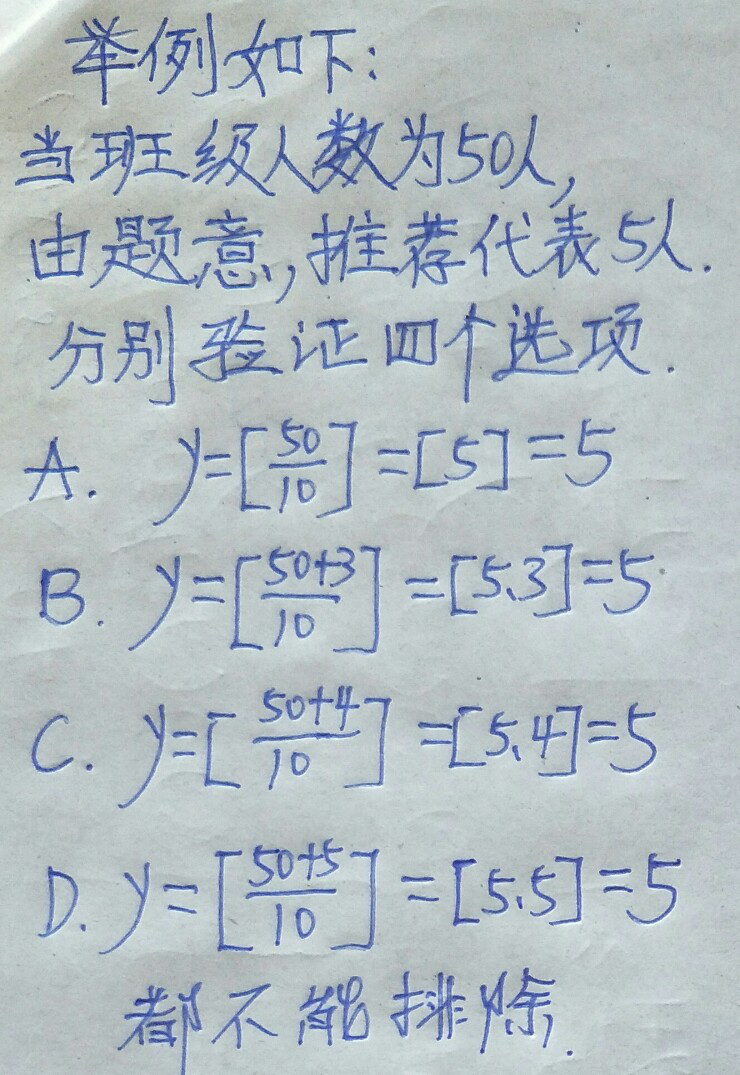 举例如下:
当班级人数为50人,
由题意,推荐代表5人.
分别验证四个选项.
A. y=[50/10]=[5]=5
B. y=[50+3/10]=[5.3]=5
C. y=[50+4/10]=[5.4]=5
D. y=[50+5/10]=[5.5]=5
都不能排除.